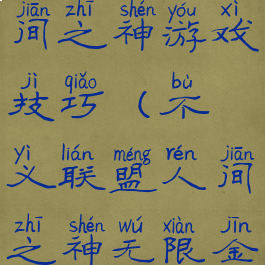 jiān zhī shén yóu xì
间之神游戏
jì qiǎo bù
技巧（不
yì lián méng rén jiān
义联盟人间
zhī shén wú xiàn jīn
之神无限金